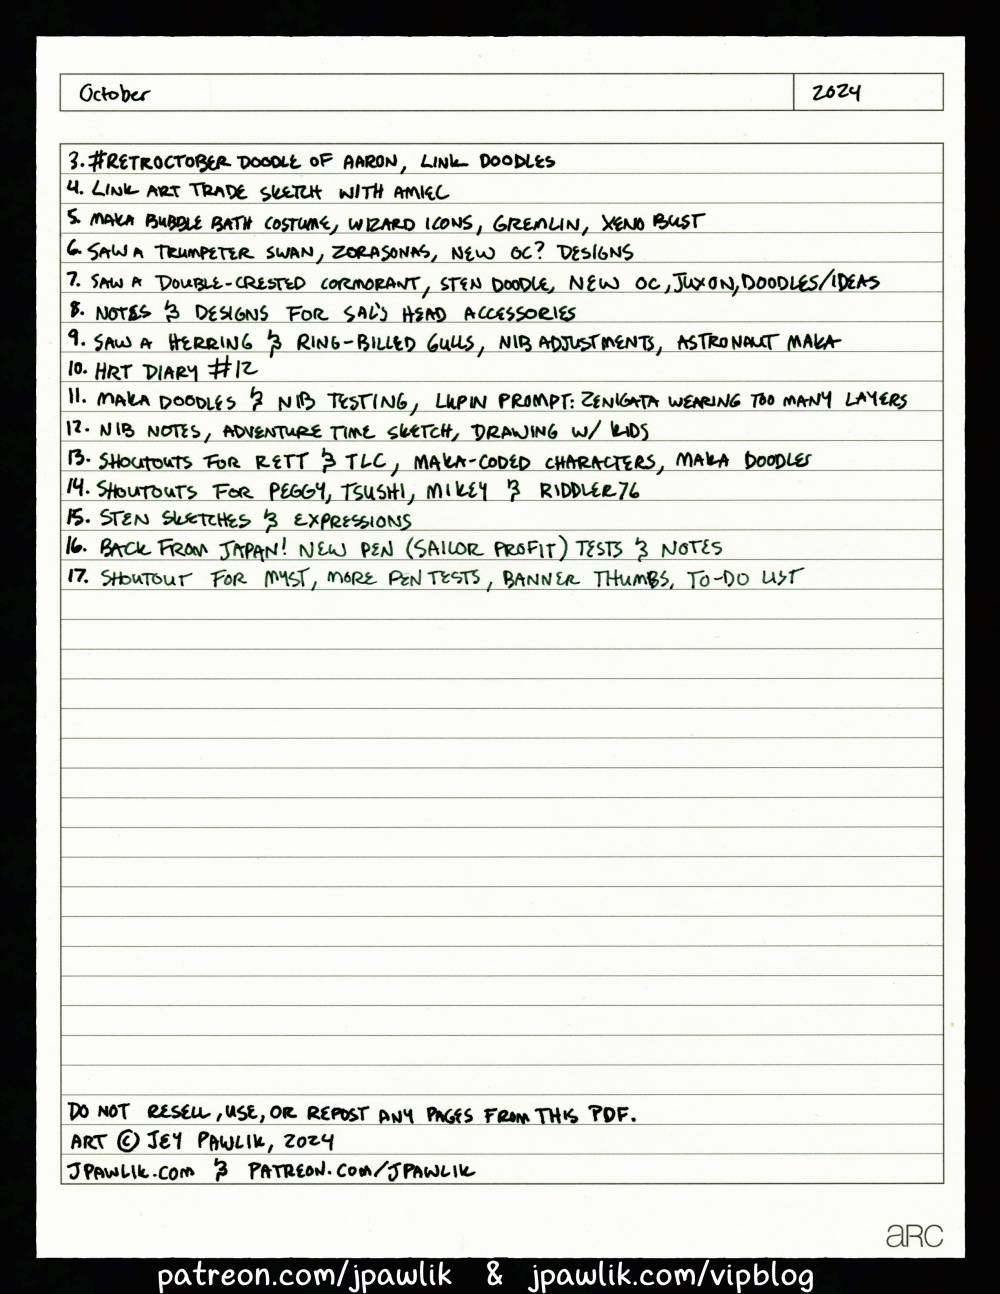 October 2024
3. #RETROCTOBER DOODLE OF AARON, LINK DOODLES
4. LINK ART TRADE SKETCH WITH AMIEC
5. MAKA BUBBLE BATH COSTUME, WIZARD ICONS, GREMLIN, XENO BUST
6. SAW A TRUMPETER SWAN, ZORASONAS, NEW OC? DESIGNS
7. SAW A DOUBLE-CRESTED CORMORANT, STEN DOODLE, NEW OC, JUXON, DOODLES/IDEAS
8. NOTES & DESIGNS FOR SAL'S HEAD ACCESSORIES
9. SAW A HERRING & RING-BILLED GULLS, NIB ADJUSTMENTS, ASTRONAUT MAKA
10. HRT DIARY #12
11. MAKA DOODLES & NIB TESTING, LUPIN PROMPT: ZENIGATA WEARING TOO MANY LAYERS
12. NIB NOTES, ADVENTURE TIME SKETCH, DRAWING W/ KIDS
13. SHOUTOUTS FOR RETT & TLC, MAKA-CODED CHARACTERS, MAKA DOODLES
14. SHOUTOUTS FOR PEGGY, TSUSHI, MIKEY & RIDDLER76
15. STEN SKETCHES & EXPRESSIONS
16. BACK FROM JAPAN! NEW PEN (SAILOR PROFIT) TESTS & NOTES
17. SHOUTOUT FOR MYST, MORE PEN TESTS, BANNER THUMBS, TO-DO LIST
DO NOT RESELL, USE, OR REPOST ANY PAGES FROM THIS PDF.
ART © JEY PAWLIK, 2024
JPAWLIK.COM & PATREON.COM/JPAWLIK
ARC
patreon.com/jpawlik & jpawlik.com/vipblog